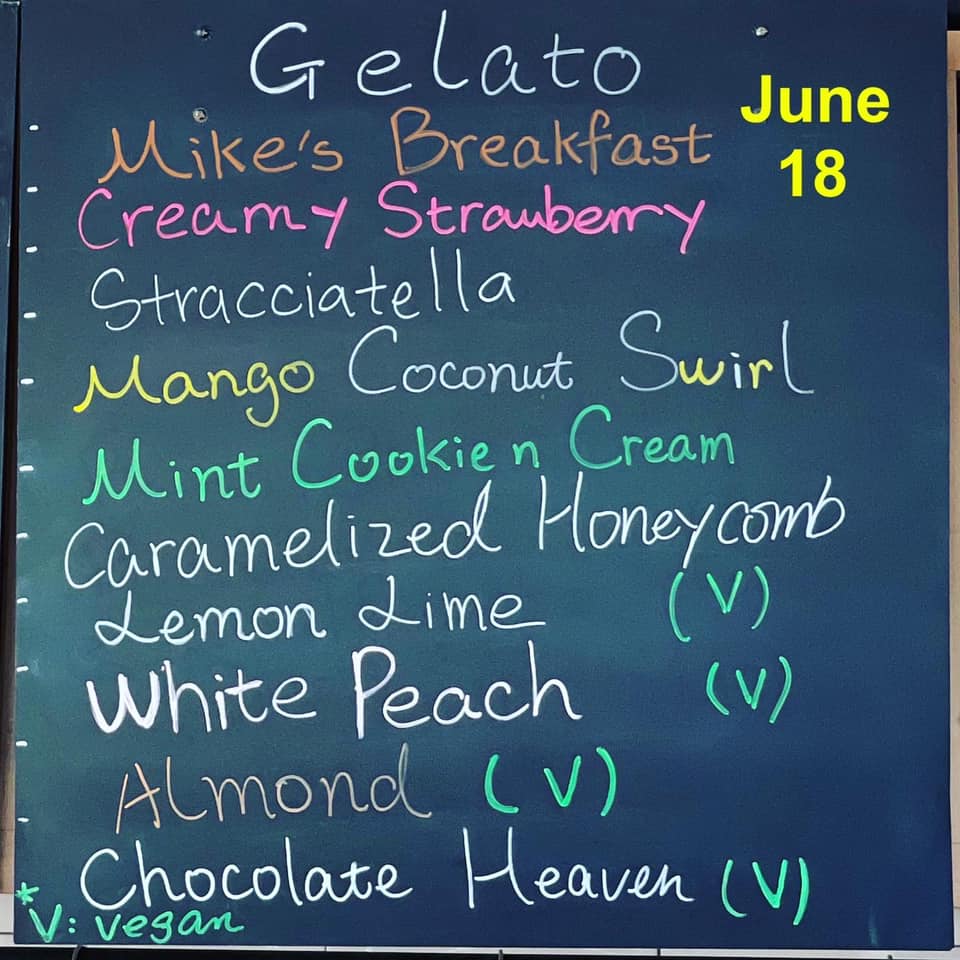 Gelato
June
18
Mike's Breakfast
Creamy Strawberry
Stracciatella
Mango Coconut Swirl
Mint Cookie n Cream
Caramelized Honeycomb
Lemon Lime (V)
White Peach (V)
Almond (V)
Chocolate Heaven (V)
*V: vegan